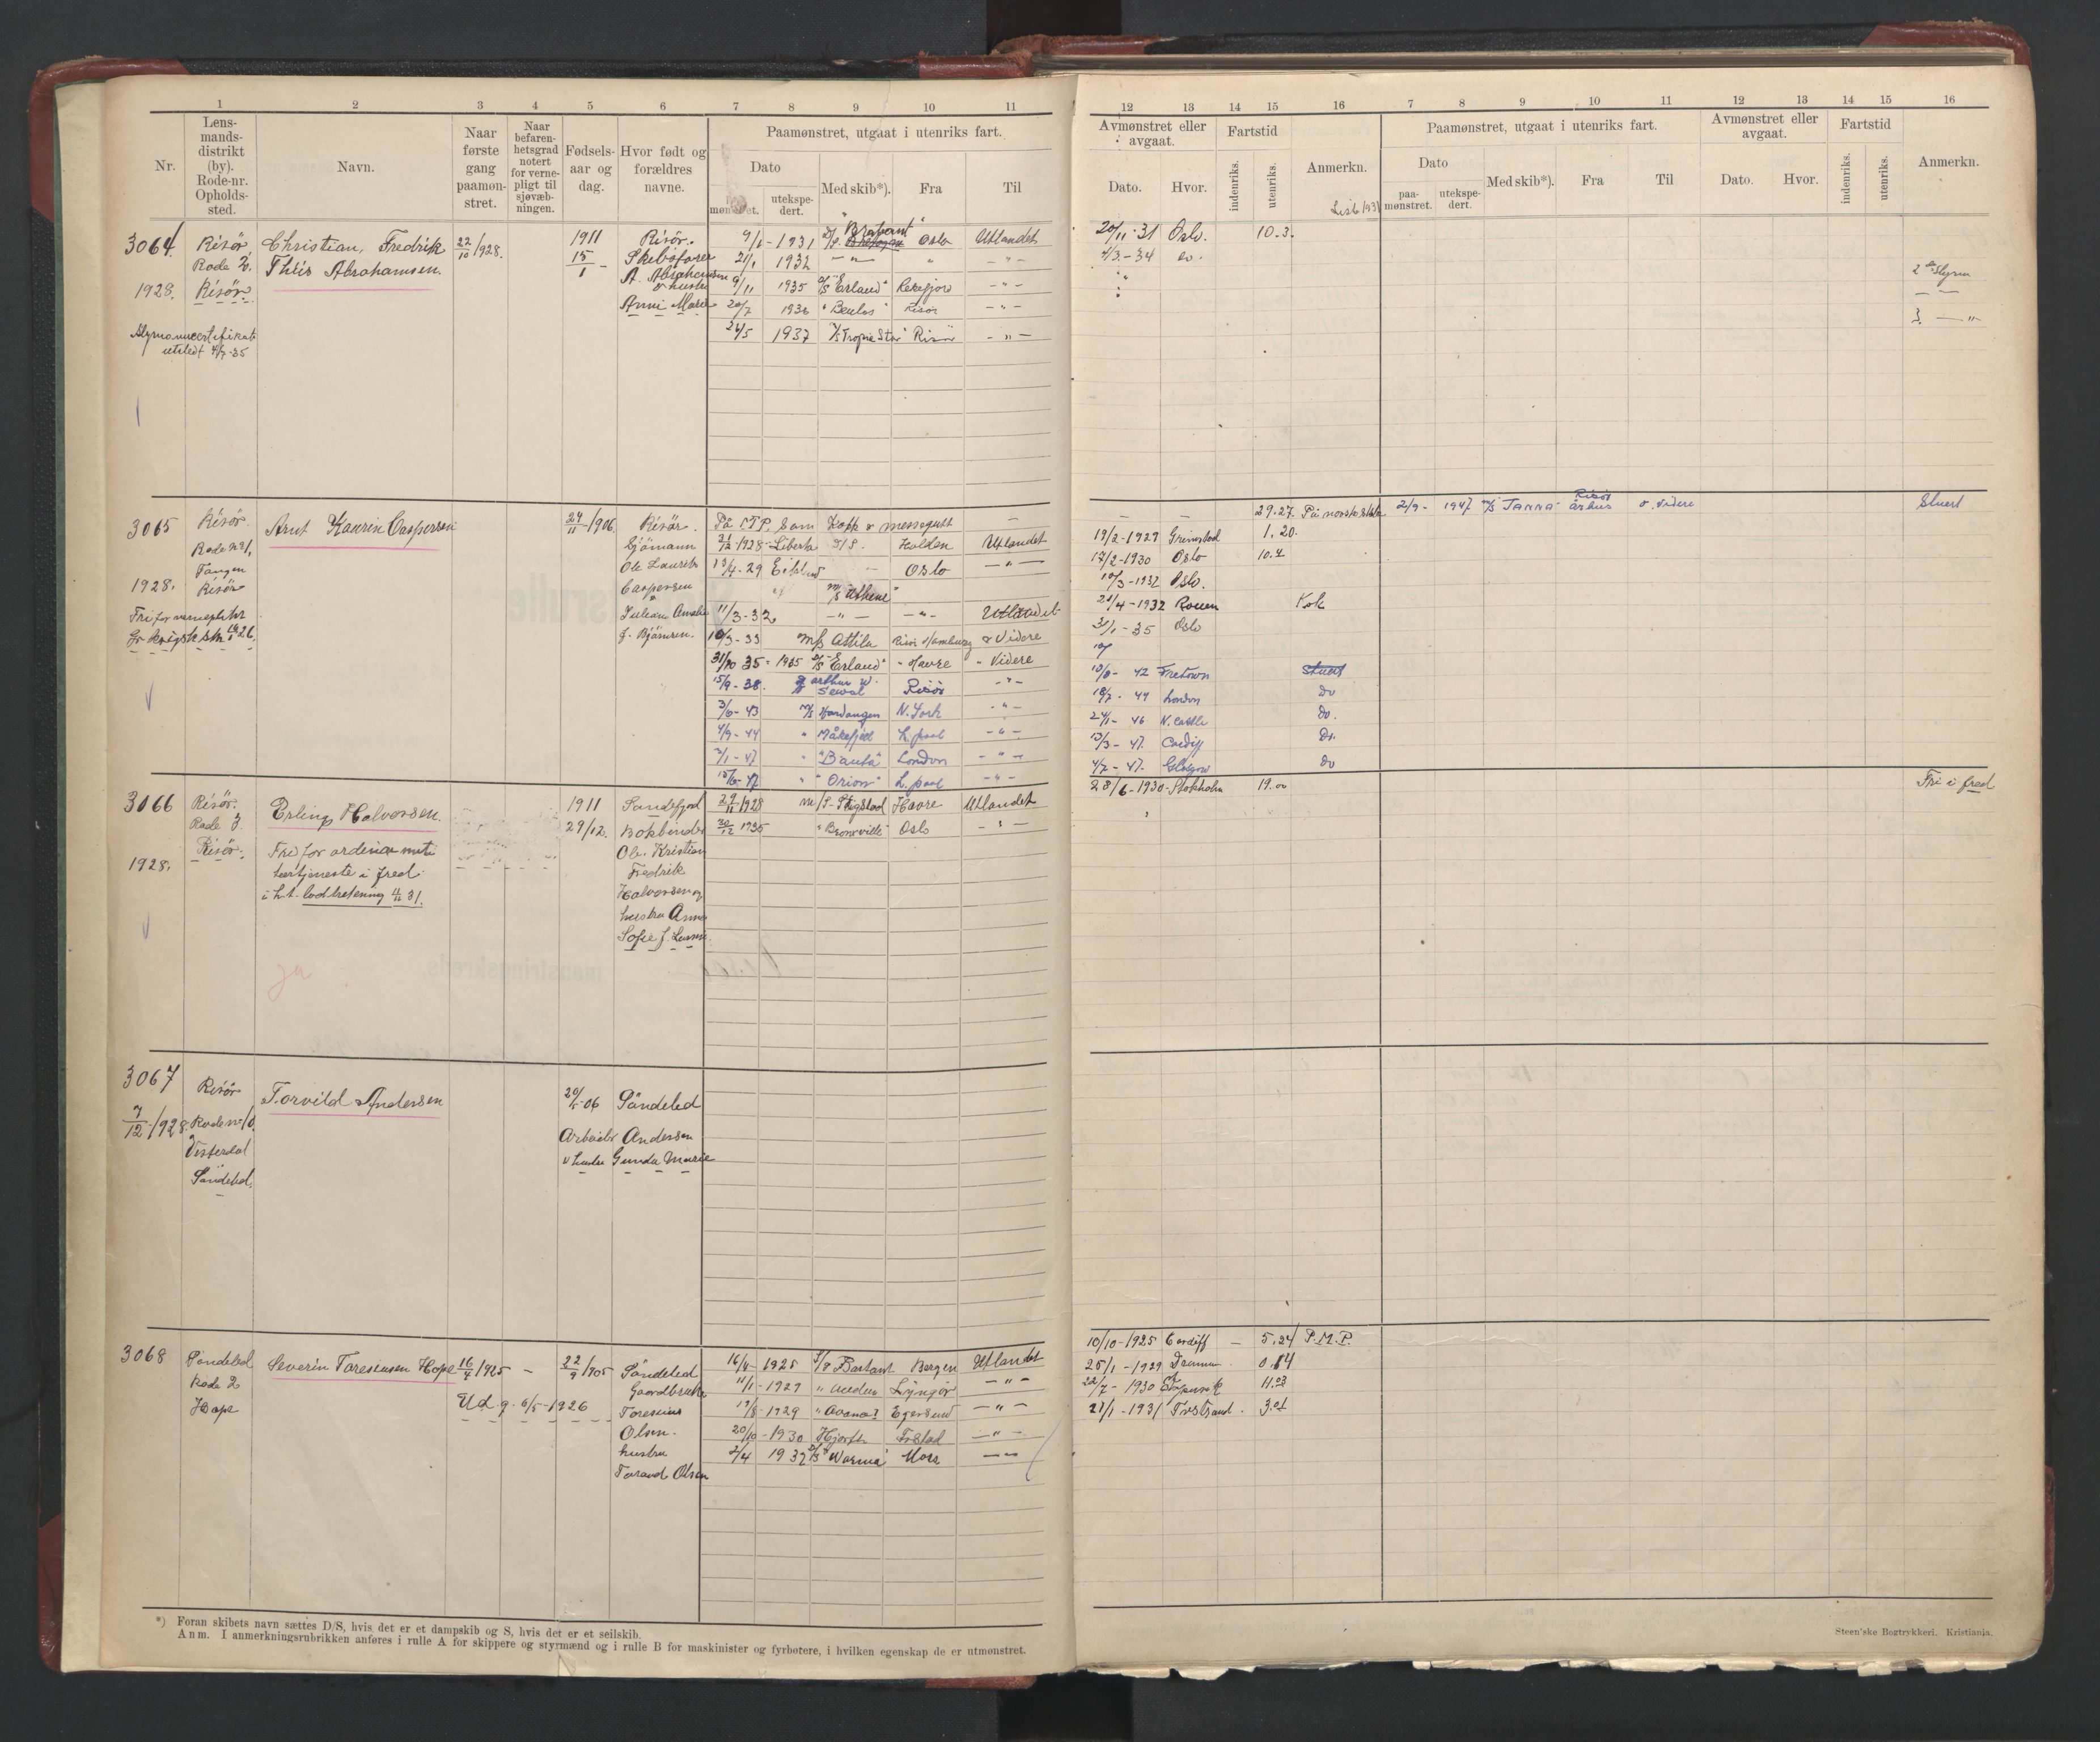 1 2 3 4 5 6 7 8 9 10 11
Nr.
Lens-
mands-
distrikt
(by).
Rode-nr.
Opholds-
sted.
Navn.
Naar
første
gang
paamøn-
stret.
Naar
befaren-
hetsgrad
notert
for verne-
pligt til
sjøvæb-
ningen.
Fødsels-
aar og
dag.
Hvor født og
forældres
navne.
Paamønstret, utgaat i utenriks fart.
Dato
mønstret.
utekspe-
dert.
Med skib*).
Fra
Til
3064
1928.
Risör
Rode 2.
Risör
Styrmanncertifikat
utstedt 4/7-35
Christian, Fredrik
Thiis Abrahamsen.
22/10 1928.
1911
15/1 -
Risör.
Skibsfører
A. Abrahamsen
& hustru
Anni Marie
9/1 - 1931 D/S. "Brabant" Oslo Utlandet
21/1 1932 - " - " - " -
9/11 1935 D/S "Erland" Rekefjord - " -
20/7 1936 Risör - " -
26/5 1937 "Tropic Star" Risör - " -
3065
1928.
Risör
Rode nr 1,
Tangen
Risör
Fri for verneplikt
Arnt Kaurin Caspersen
24/11 1906.
Risör.
Sjömann
Ole Laurits
Caspersen
Juliane Amalie
f. Bjömsen.
På STP. som Kokk & messegutt -
21/12 1928 Liberta D/S. Halden Utlandet
13/4 - 29 - Oslo - " -
M/S "Athene"
11/3 - 32 - " - - " - Utlandet
10/3 - 33 M/S Attila Risör Hamburg & Videre
31/10 35 - 1935 D/S "Erland" " Havre " Videre
15/9 - 38. Arthur W. Sewal Risör - " -
3/6 - 43 M/S Hardanger N. York - " -
4/9 - 44 " Måkefjell L.pool - " -
3/1 - 47 " "Bauta" London - " -
15/6 - 47 " "Orion" L.pool - " -
3066
1928.
Risör.
Rode 3.
Risör.
Erling Halvorsen.
Fri for ordinær mili-
tærtjeneste i fred
i h.t. lodtrekning 4/11 31.
ja
1911
29/12.
Sandefjord
Bokbinder
Ole Kristian
Fredrik
Halvorsen og
hustru Anna
Sofie f. Larsen.
29/11 1928 M/S. Stigstad Havre Utlandet
30/12 1935 "Bronxville" Oslo - " -
3067
7/12 1928.
Risör
Rode nr 10.
Vesterdal
Söndeled.
Torvild Andersen
20/5-06
Söndeled
Arbeider Andersen
& hustru Gunda Marie
3068
Söndeled
Rode 2
Hope
Severin Toresensen Hope
16/4 1925 -
22/9 1905
Ud. g. 6/5-1926
Söndeled
Gaardbruker
Toresius
Olsen.
hustru
Olsen
16/4 - 1925 S/S Bartant Bergen Utlandet
11/1 - 1929 " Lyngör - " -
19/8 - 1929 " Egersund - " -
20/10 - 1930 - " -
2/4 1932 D/S "Warma" Moss - " -
*) Foran skibets navn sættes D/S, hvis det er et dampskib og S, hvis det er et seilskib.
Anm. I anmerkningsrubrikken anføres i rulle A for skippere og styrmænd og i rulle B for maskinister og fyrbøtere, i hvilken egenskap de er utmønstret.
12 13 14 15 16 7 8 9 10 11 12 13 14 15 16
Avmønstret eller
avgaat.
Dato.
Hvor.
Fartstid
indenriks.
utenriks.
Anmerkn.
Liste 1931
Paamønstret, utgaat i utenriks fart.
Dato
paa-
mønstret.
utekspe-
dert.
Med skib*).
Fra
Til
Avmønstret eller
avgaat.
Dato.
Hvor.
Fartstid
indenriks.
utenriks.
Anmerkn.
20/11-31 Oslo. 10.3.
4/3-34 do.
2den Styrm
- " -
3. - " -
- - 29.27. På norske skib 2/9 - 1947 M/S JANNA Risör Århus & Videre Stuert
19/2-1929 Grimstad 1.20.
17/2-1930 Oslo
10/3-1932 Oslo.
21/4-1932 Rouen Kok
31/1-35 Oslo
13/8-42 Freetown Stuert
18/7-44 London Do
24/1-46 N.Castle Do.
13/3-47. Cardiff Do.
4/7-47. Glasgow Do
28/6-1930 Stokholm 19.00 Fri i fred
10/10-1925 Cardiff - 5.24 P.M.P.
25/1-1929 Drammen. 0.14
22/7-1930 11.03
21/1-1931 Tvestrand. 3.01
Steen'ske Bogtrykkeri. Kristiania.